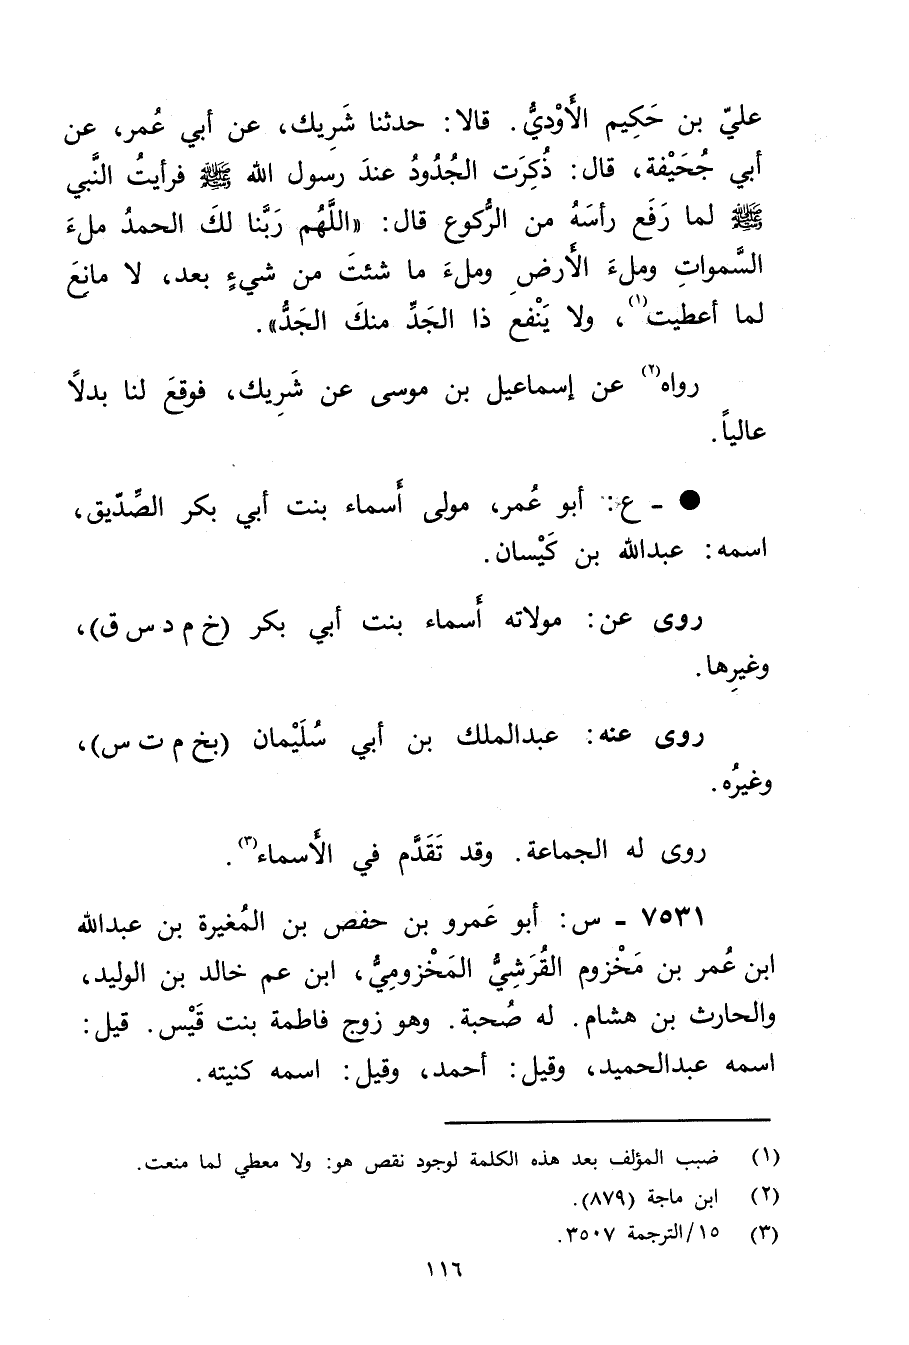 عليّ بن حَكِيم الأَوْديُّ. قالا: حدثنا شَرِيك، عن أبي عُمر، عن
أبي جُحَيْفة، قال: ذُكِرَت الجُدُودُ عندَ رسول الله ﷺ فرأيتُ النَّبي
ﷺ لما رَفَع رأسَهُ من الرُّكوع قال: «اللَّهُم رَبَّنا لكَ الحمدُ ملءَ
السَّمواتِ وملءَ الأَرضِ وملءَ ما شئتَ من شيءٍ بعد، لا مانِعَ
لما أعطيت(١)، ولا يَنْفع ذا الجَدِّ منكَ الجَدُّ».
رواه(٢) عن إسماعيل بن موسى عن شَرِيك، فوقعَ لنا بدلاً
عالياً.
● ـ ع: أبو عُمر، مولى أَسماء بنت أبي بكر الصِّدّيق،
اسمه: عبدالله بن كَيْسان.
روى عن: مولاته أَسماء بنت أبي بكر (خ م د س ق)،
وغيرِها.
روى عنه: عبدالملك بن أبي سُلَيْمان (بخ م ت س)،
وغيرُه.
روى له الجماعة. وقد تَقَدَّم في الأَسماء(٣).
٧٥٣١ ـ س: أبو عَمرو بن حفص بن المُغيرة بن عبدالله
ابن عُمر بن مَخْزوم القُرَشِيُّ المَخْزوميُّ، ابن عم خالد بن الوليد،
والحارث بن هشام. له صُحبة. وهو زوج فاطمة بنت قَيْس. قيل:
اسمه عبدالحميد، وقيل: أحمد، وقيل: اسمه كنيته.
(١) ضبب المؤلف بعد هذه الكلمة لوجود نقص هو: ولا معطي لما منعت.
(٢) ابن ماجة (٨٧٩).
(٣) ١٥/الترجمة ٣٥٠٧.
١١٦